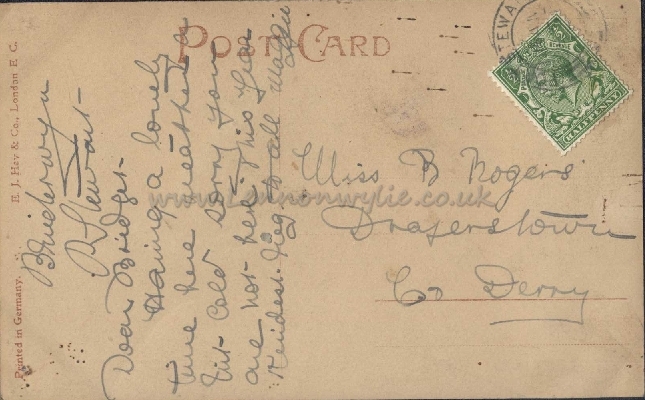 POST CARD
Printed in Germany. H. J. Hay & Co., London E. C.
P. Stewart-
Dear Bridget-
Having a lovely
time here weather a
bit cold sorry you
are not here this year
Kindest to all Maggie
Miss B Rogers
Draperstown
Co Derry
www.Lennonwylie.co.uk
STEWA
HALFPENNY